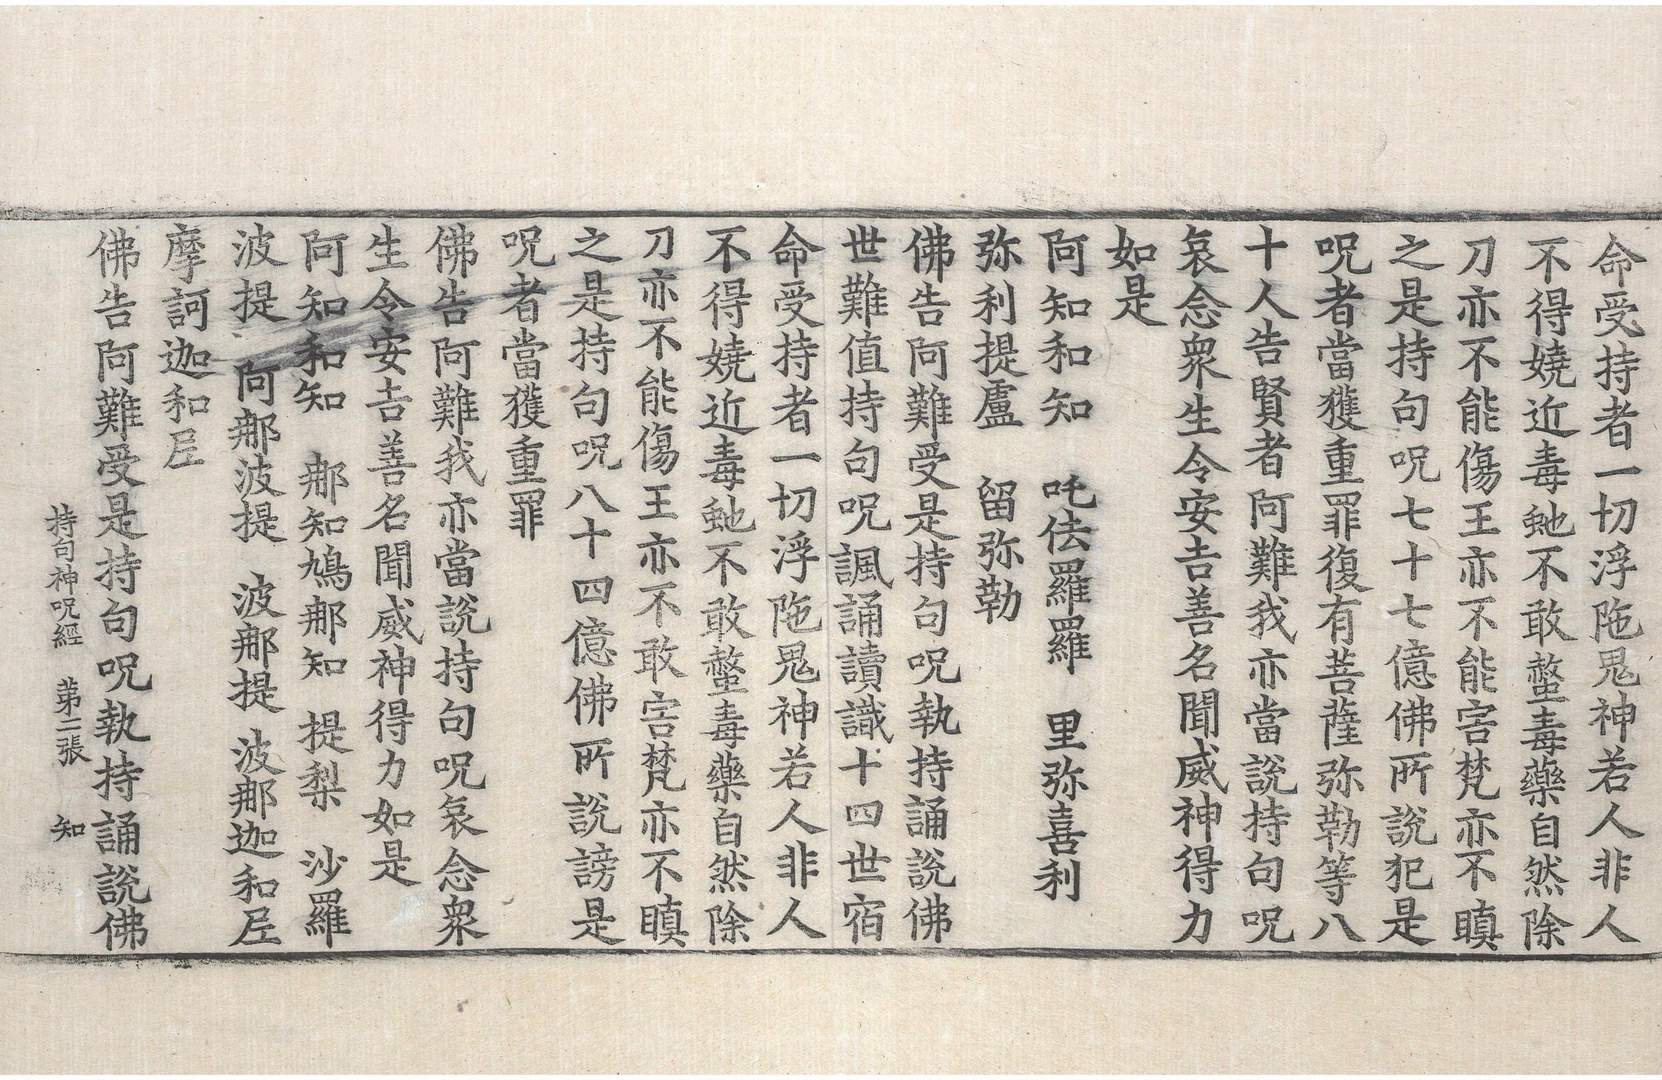 命受持者一切浮陁鬼神若人非人
不得嬈近毒虵不敢螫毒藥自然除
刀亦不能傷王亦不能害梵亦不瞋
之是持句呪七十七億佛所說犯是
呪者當獲重罪復有菩薩弥勒等八
十人告賢者阿難我亦當說持句呪
哀念衆生令安吉善名聞威神得力
如是
阿知和知 吒佉羅羅 里弥喜利
弥利提盧 留弥勒
佛告阿難受是持句呪執持誦說佛
世難值持句呪諷誦讀識十四世宿
命受持者一切浮陁鬼神若人非人
不得嬈近毒虵不敢螫毒藥自然除
刀亦不能傷王亦不敢害梵亦不瞋
之是持句呪八十四億佛所說謗是
呪者當獲重罪
佛告阿難我亦當說持句呪哀念衆
生令安吉善名聞威神得力如是
阿知和知 那知鳩那知 提梨 沙羅
波提 阿那波提 波那提 波那迦和𡰱
摩訶迦和𡰱
佛告阿難受是持句呪執持誦說佛
持句神呪經 苐二張 知